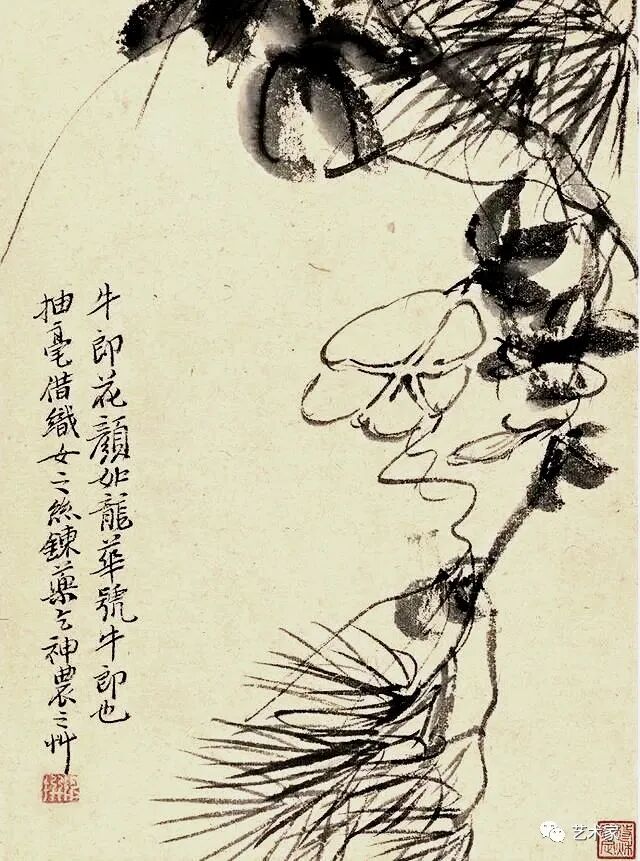 牛郎花顏如龍華號牛郎也
抽毫借織女之絲鍊藥乞神農之艸
艺术家